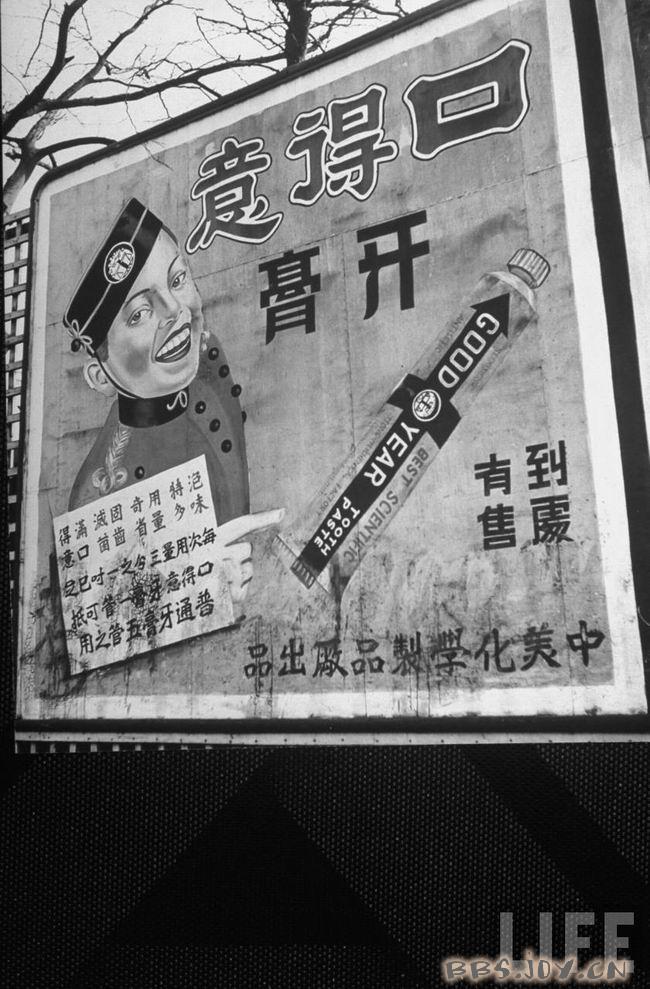 口得意
牙膏
GOOD YEAR
TOOTH
PASTE
BEST SCIENTIFIC
到處
有售
泡味
特多
用量
奇省
固齒
滅菌
滿口
得意
每次用量三分之一吋已足
口得意牙膏一管可抵
普通牙膏五管之用
中美化學製品廠出品
LIFE
BBS.JOY.CN